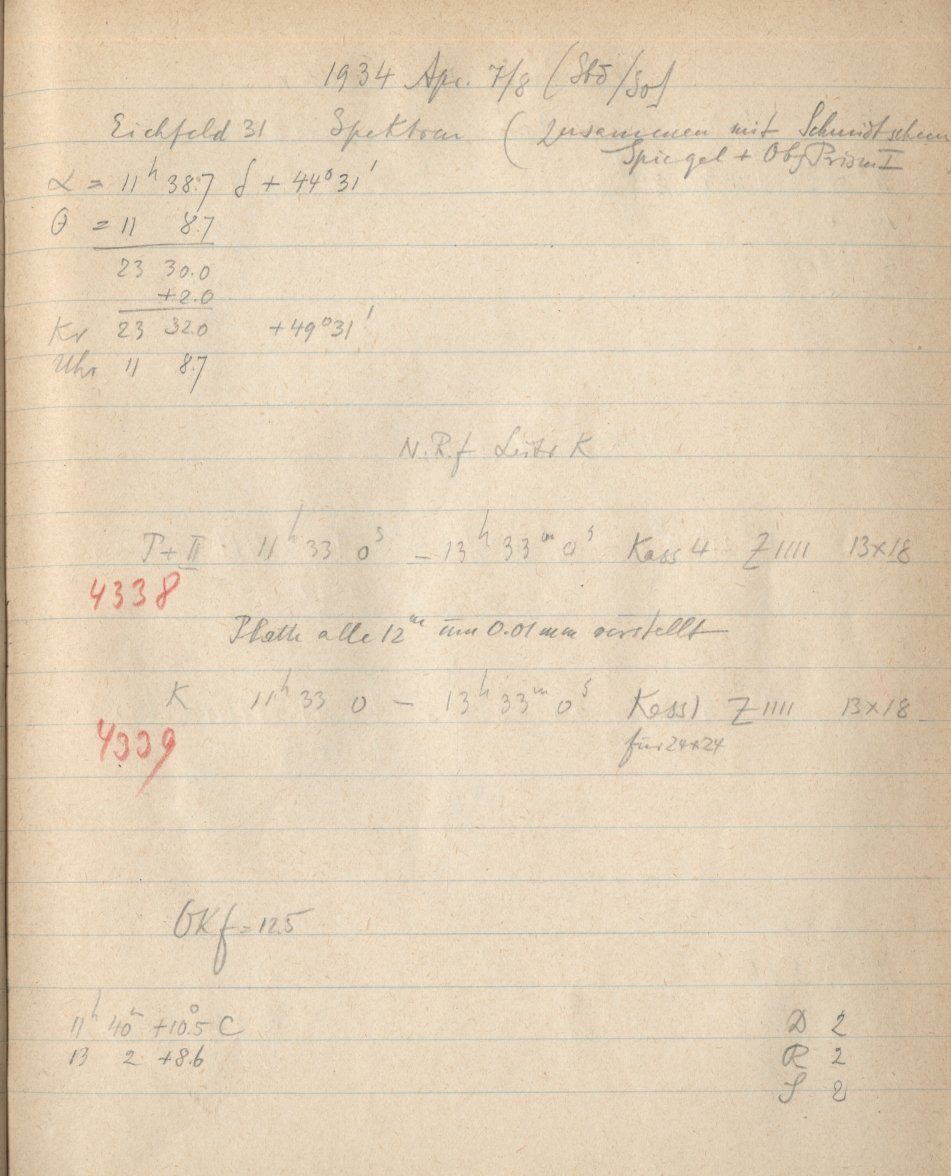 1934 Apr. 7/8 (Sbd/So)
Eichfeld 31 Spektren (zusammen mit Schmidtschem
Spiegel + Obj Prism I
α = 11ʰ 38.7 δ + 44°31'
θ = 11 8.7
23 30.0
+2.0
Kr 23 32.0 +49°31'
Uhr 11 8.7
N.R.f Leitr K
P+II 11ʰ 33 0ˢ – 13ʰ 33ᵐ 0ˢ Kass 4 Z IIII 13x18
4338
Platte alle 12ᵐ um 0.01 mm verstellt
K 11ʰ 33 0 – 13ʰ 33ᵐ 0ˢ Kass 1 Z IIII 13x18
4339
für 24x24
OKf = 12.5
11ʰ 40ᵐ +10°.5 C
13 2 +8.6
D 2
R 2
S 2